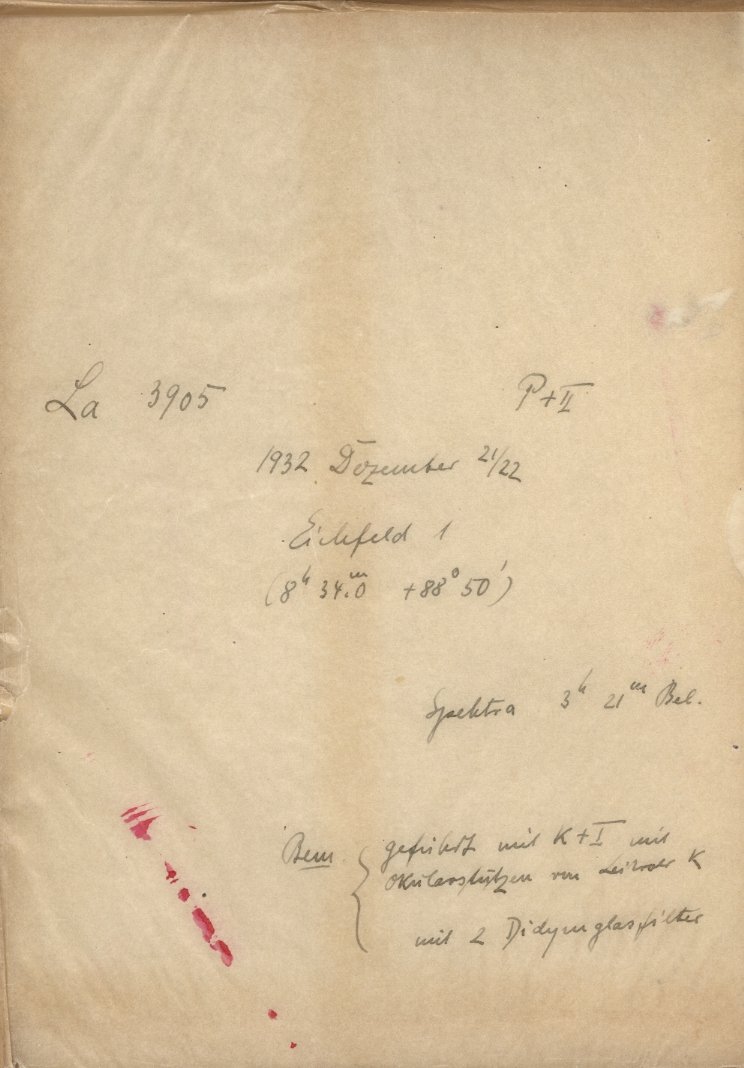 La 3905 P+II
1932 Dezember 21/22
Eichfeld 1
(8h 34.m0 +88° 50')
Spektra 3h 21m Bel.
Bem. geführt mit K+I mit
Okularstützen von K
mit 2 Didymglasfilter